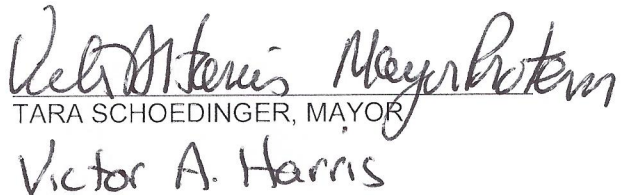 Victor A Harris Mayor Protem
TARA SCHOEDINGER, MAYOR
Victor A. Harris